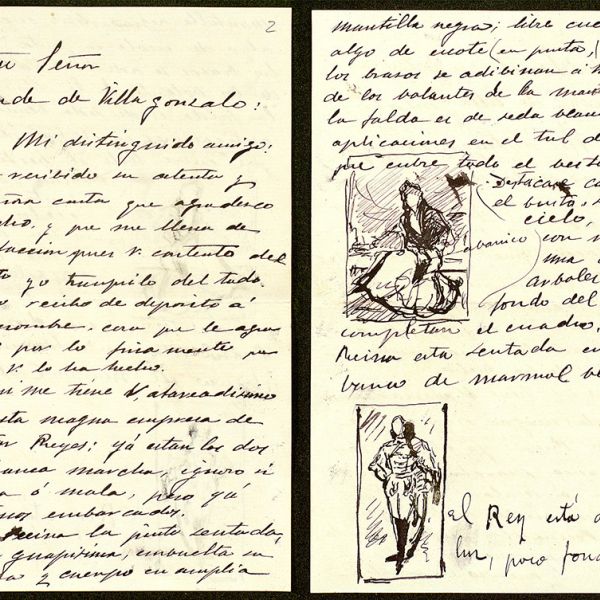 2
Señor
de de Villagonzalo:
Mi distinguido amigo:
recibido su atenta y
carta que agradezco
y que me llena de
pues V. contento del
yo tranquilo del todo.
recibo de deposito á
nombre, cosa que le agra
por lo finamente que
V. lo ha hecho.
me tiene V. atareadisimo
esta magna empresa de
Reyes; yá estan los dos
marcha, ignoro si
ó mala, pero yá
embarcados.
Reina la pinto sentada,
guapisima, embuelta su
y cuerpo en amplia
mantilla negra; libre
algo de escote (en punta,
los brasos se adibinan á
de los bolantes de la man
la falda es de seda blan
aplicaciones en el tul
que cubre todo el vest
Destácase
el busto,
cielo,
abanico
con
una
arbole
fondo del
completan el cuadro,
Reina esta sentada en
banco de marmol
El Rey está
luz, pero fon